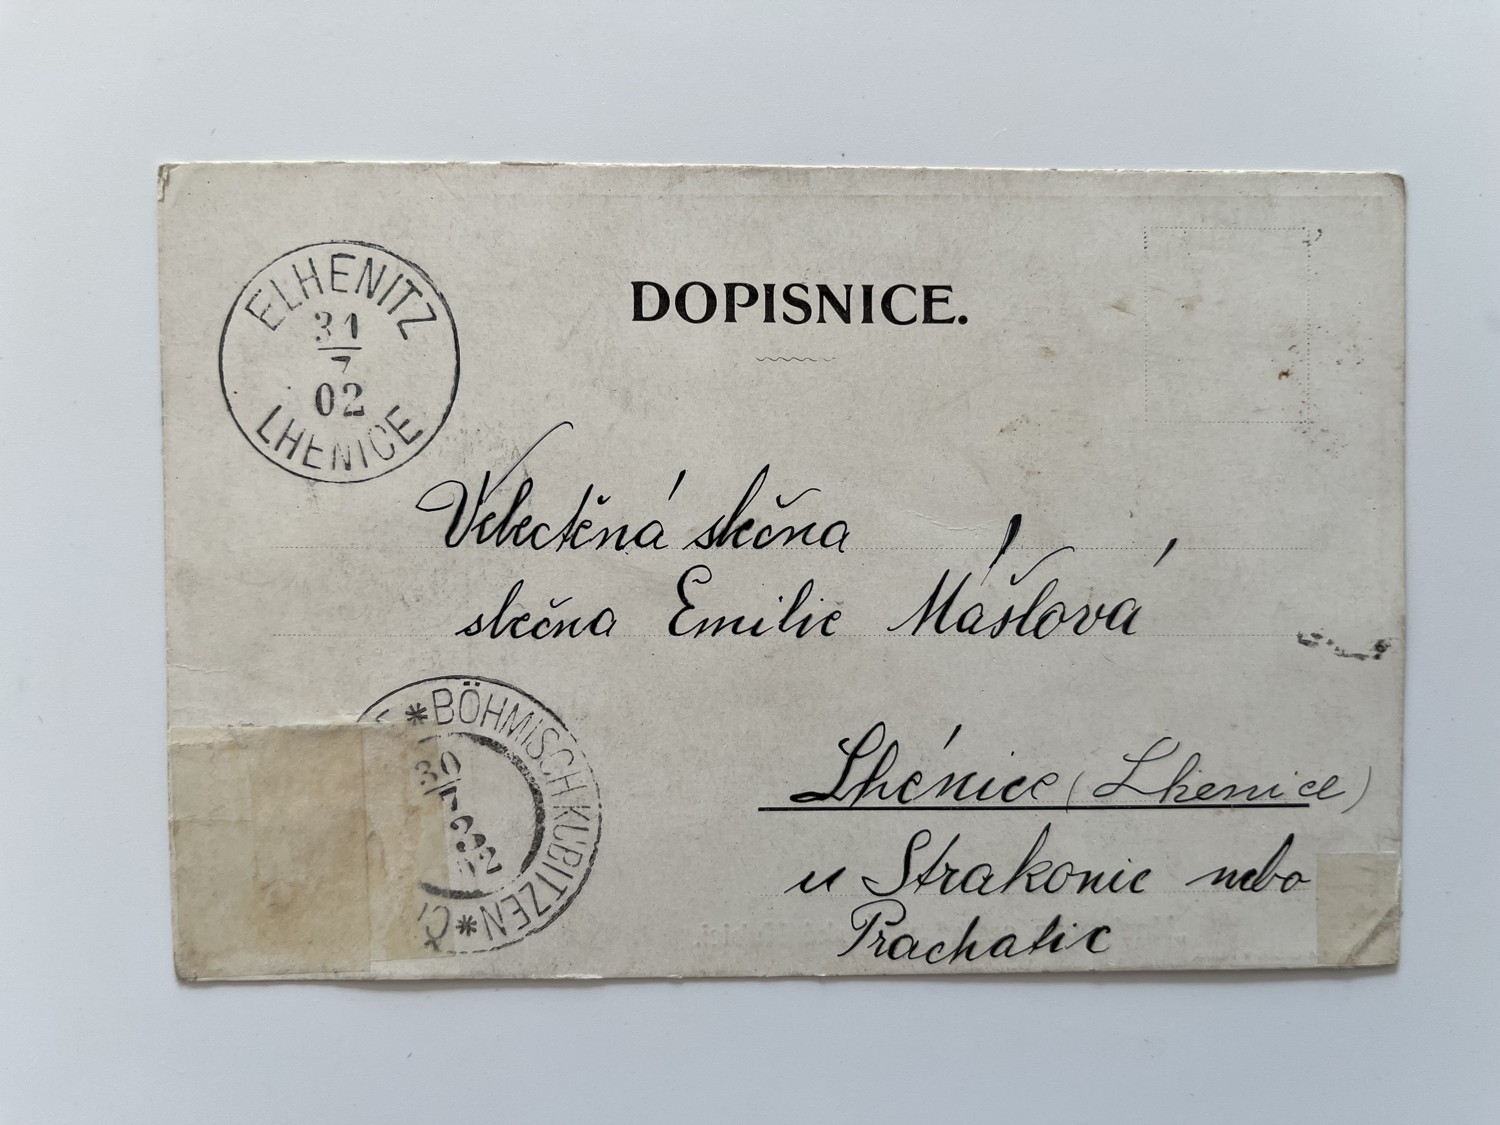 ELHENITZ
31
7
02
LHENICE
DOPISNICE.
Velectěná slečna
slečna Emilie Mášlová
* BÖHMISCH KUBITZEN *
30
02
Lhénice (Lhenice)
u Strakonic nebo
Prachatic